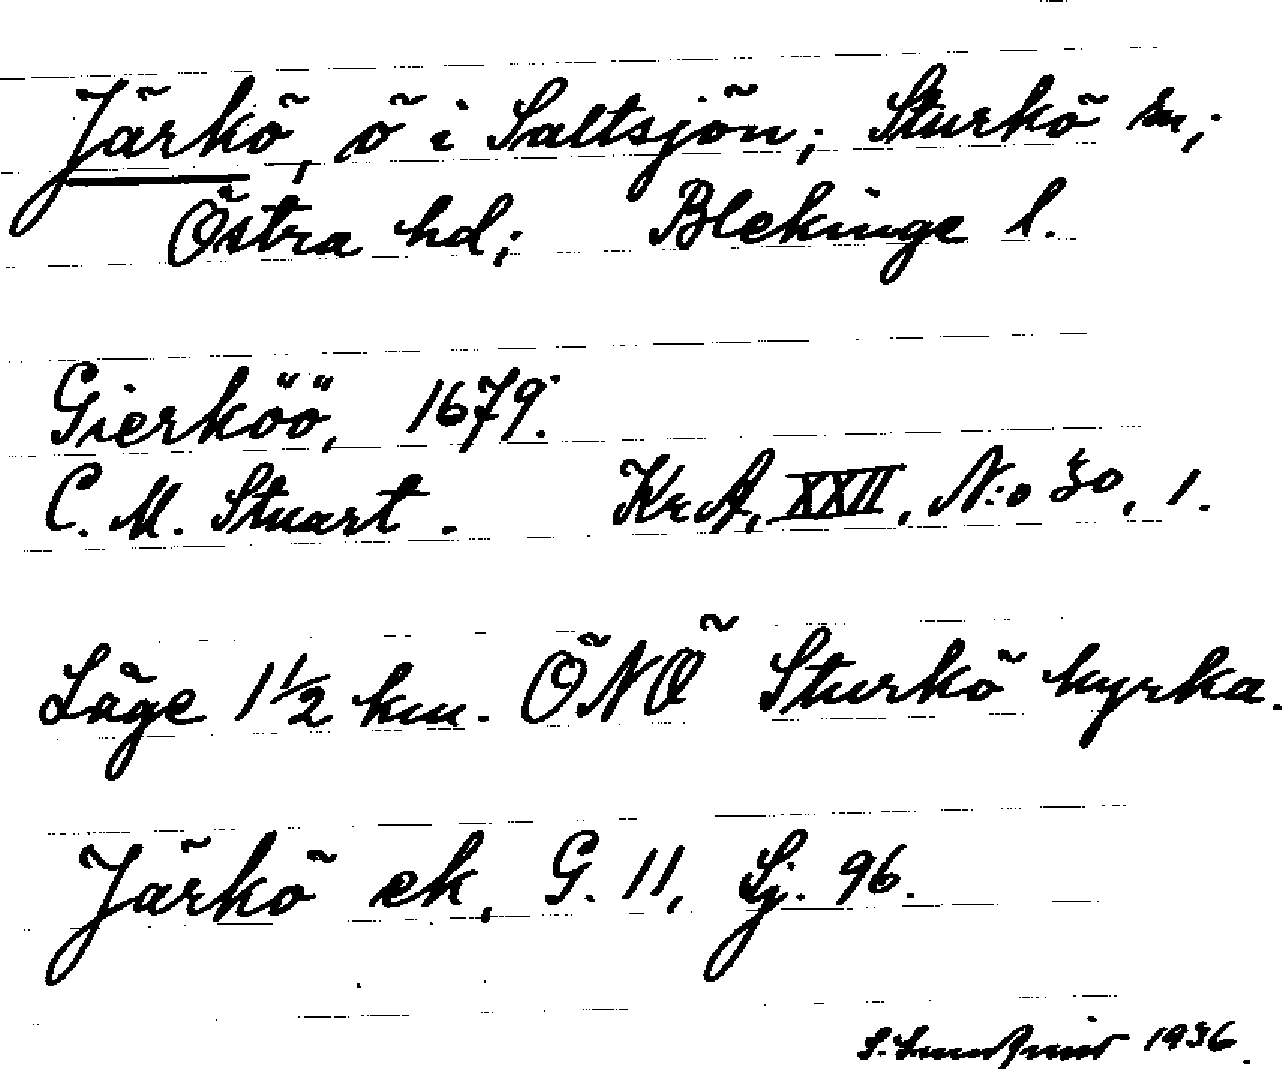 Järkö, ö i Saltsjön; Sturkö sn;
Östra hd; Blekinge l.
Gierköö, 1679.
C. M. Stuart. KrA, XXII, N:o 30, 1.
Läge 1 1/2 km. ÖNÖ Sturkö kyrka.
Järkö ek, G. 11, Sj. 96.
S. 1936.